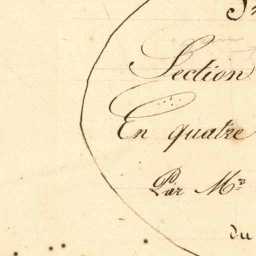 Section
En quatre
Par Mr
du